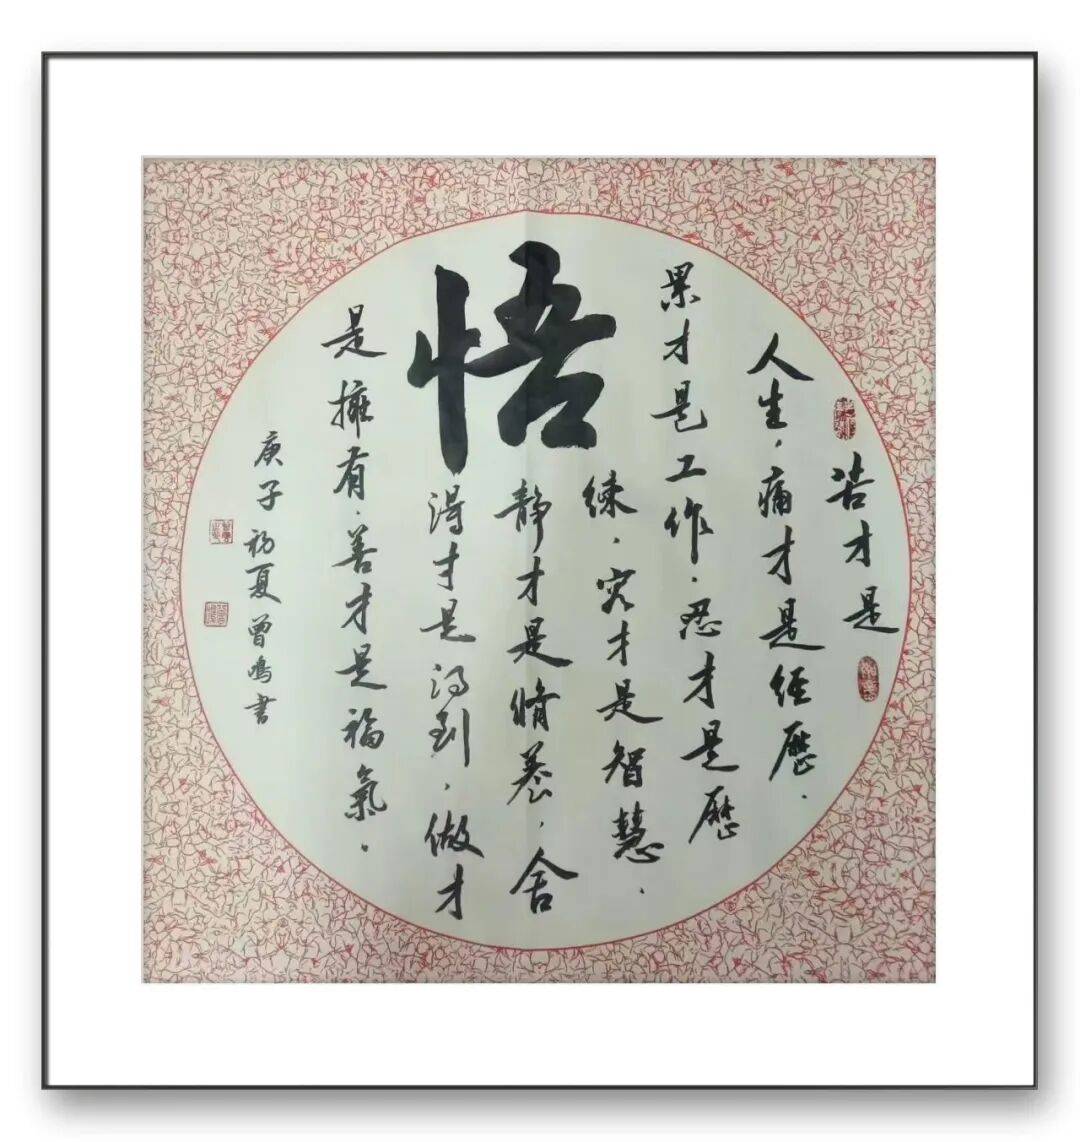 悟
苦才是
人生，痛才是经歷，
累才是工作，忍才是歷
練，容才是智慧，
静才是脩養，舍
得才是得到，做才
是擁有，善才是福氣。
庚子初夏曾鸣書